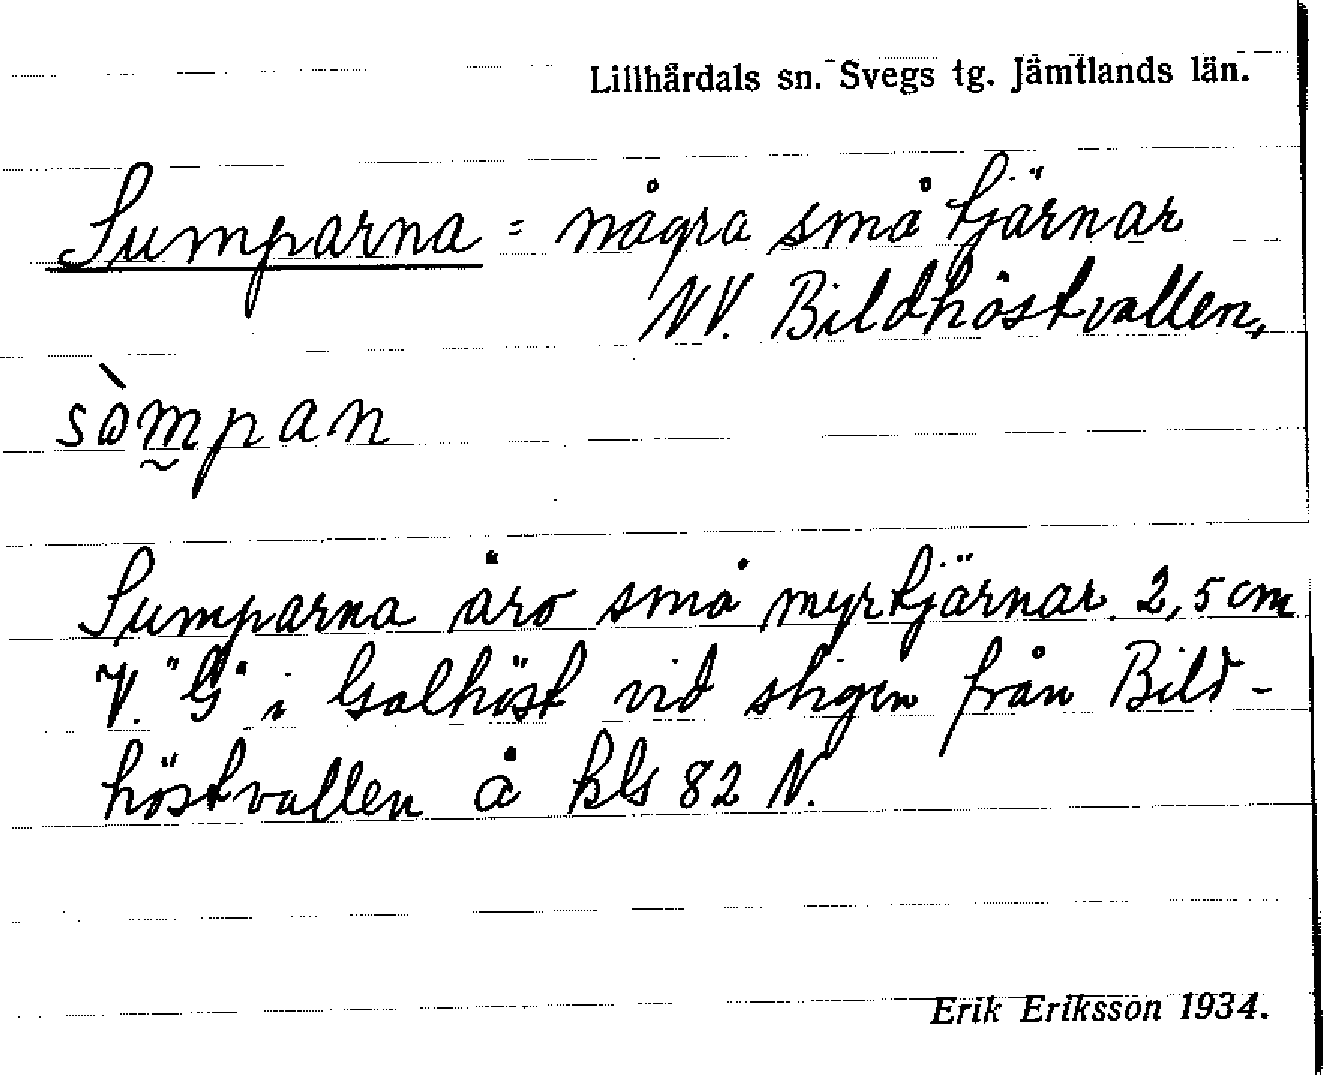 Lillhärdals sn. Svegs tg. Jämtlands län.
Sumparna = några små tjärnar
NV. Bildhöstvallen,
sòmpan
Sumparna äro små myrtjärnar 2,5 cm
V. "G" i Galhöst vid stigen från Bild-
höstvallen å kbl 82 N.
Erik Eriksson 1934.